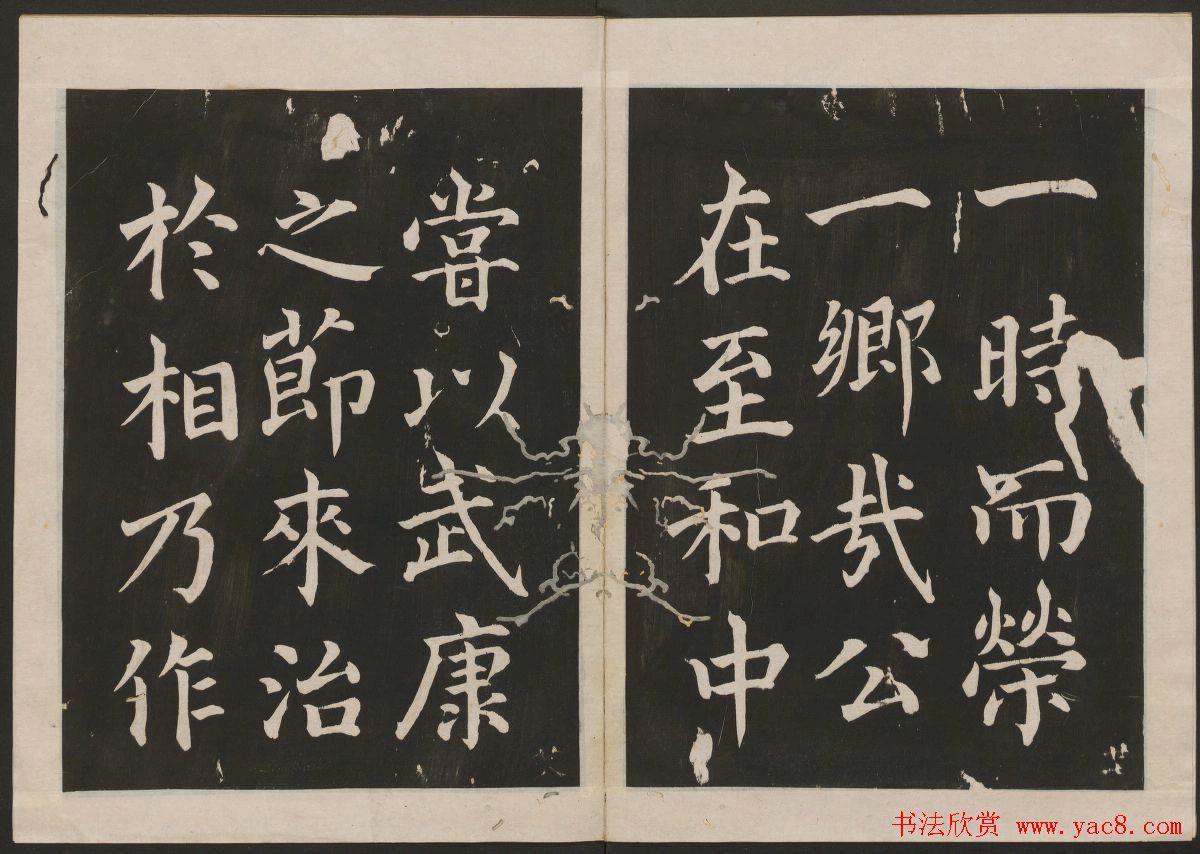 一時而榮
一鄉哉公
在至和中
嘗以武康
之節來治
於相乃作
书法欣赏 www.yac8.com